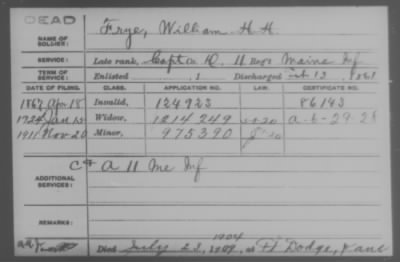 DEAD
NAME OF SOLDIER: Frye, William H. H.
SERVICE: Late rank, Capt Co D, 11 Reg't Maine Inf
TERM OF SERVICE: Enlisted , 1 Discharged Feb 13, 1865
DATE OF FILING. CLASS. APPLICATION NO. LAW. CERTIFICATE NO.
1867 Apr 18 Invalid, 124923 86143
Jan Widow, 1214249 a-6-29-28
1911 Nov 20 Minor, 975390
ADDITIONAL SERVICES: C & A 11 Me Inf
REMARKS:
1904
Died July 23, 1909, at Ft Dodge, Kans